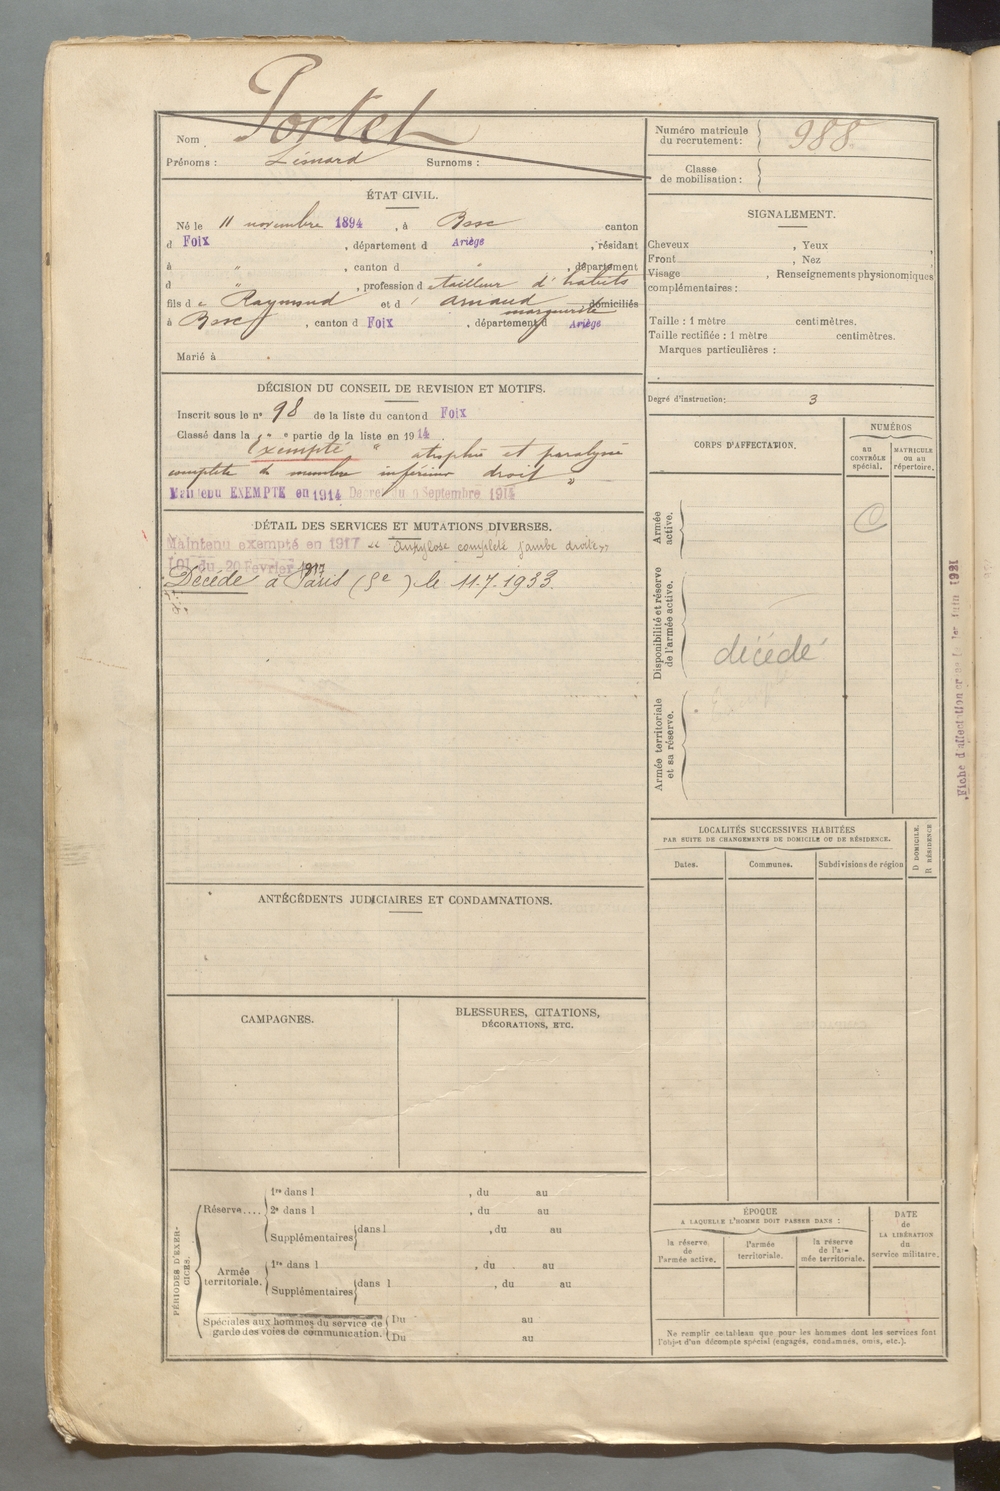 Portet
Nom
Prénoms : Léonard Surnoms :
Numéro matricule
du recrutement : 988
Classe
de mobilisation :
ÉTAT CIVIL.
Né le 11 novembre 1894, à Bosc canton
d Foix, département d Ariège, résidant
à " , canton d " , département
d " , profession d e tailleur d'habits
fils de Raymond et d' Arnaud , domiciliés
marguerite
à Bosc , canton d Foix , département d Ariège
Marié à
SIGNALEMENT.
Cheveux , Yeux ,
Front , Nez ,
Visage , Renseignements physionomiques
complémentaires :
Taille : 1 mètre centimètres.
Taille rectifiée : 1 mètre centimètres.
Marques particulières :
Degré d'instruction : 3
DÉCISION DU CONSEIL DE REVISION ET MOTIFS.
Inscrit sous le n° 98 de la liste du canton d Foix
Classé dans la " " partie de la liste en 1914.
Exempté " atrophie et paralysie
complète du membre inférieur droit "
Maintenu EXEMPTÉ en 1914 Décret du 9 Septembre 1914
DÉTAIL DES SERVICES ET MUTATIONS DIVERSES.
Maintenu exempté en 1917 « ankylose complète jambe droite »
Loi du 20 Février 1917
Décédé à Paris (5e) le 11.7.1933.
CORPS D'AFFECTATION.
NUMÉROS
au
CONTRÔLE
spécial.
MATRICULE
ou au
répertoire.
Armée
active.
Disponibilité et réserve
de l'armée active.
décédé
Armée territoriale
et sa réserve.
Fiche d'affectation 1er juin 1921
LOCALITÉS SUCCESSIVES HABITÉES
PAR SUITE DE CHANGEMENTS DE DOMICILE OU DE RÉSIDENCE.
Dates. Communes. Subdivisions de région
D DOMICILE.
R RÉSIDENCE
ANTÉCÉDENTS JUDICIAIRES ET CONDAMNATIONS.
CAMPAGNES.
BLESSURES, CITATIONS,
DÉCORATIONS, ETC.
PÉRIODES D'EXER-
CICES.
Réserve.... 1re dans l , du au
2e dans l , du au
Supplémentaires dans l , du au
Armée
territoriale. 1re dans l , du au
Supplémentaires dans l , du au
Spéciales aux hommes du service de
garde des voies de communication. Du au
Du au
ÉPOQUE
A LAQUELLE L'HOMME DOIT PASSER DANS :
la réserve
de
l'armée active.
l'armée
territoriale.
la réserve
de l'ar-
mée territoriale.
DATE
de
LA LIBÉRATION
du
service militaire.
Ne remplir ce tableau que pour les hommes dont les services font
l'objet d'un décompte spécial (engagés, condamnés, omis, etc.).